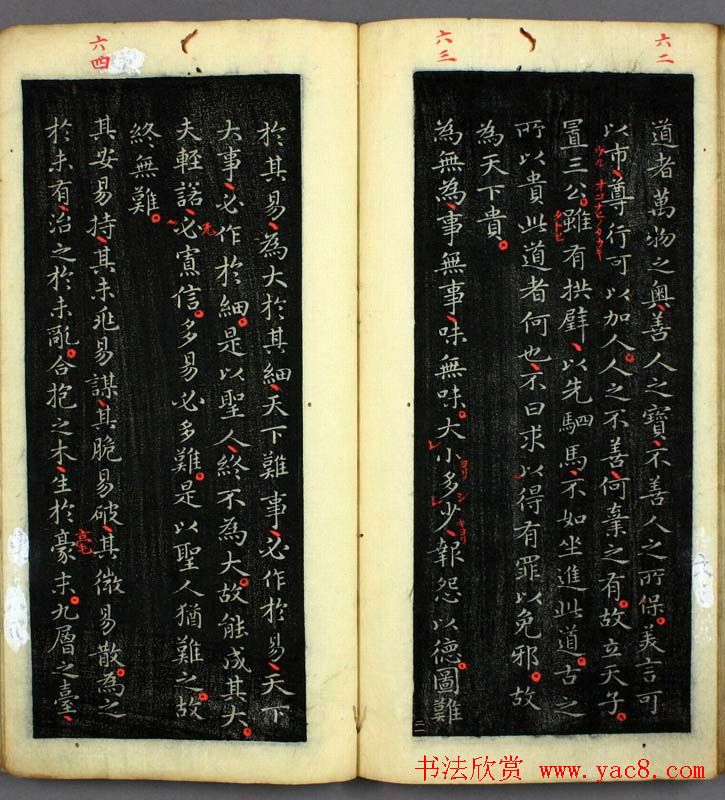 六二
道者萬物之奧、善人之寶、不善人之所保。美言可
以市、尊行可以加人。人之不善、何棄之有。故立天子、
置三公。雖有拱璧、以先駟馬、不如坐進此道。古之
所以貴此道者何也、不曰求以得有罪以免邪。故
為天下貴。
六三
為無為、事無事、味無味。大小多少、報怨以德。圖難
於其易、為大於其細、天下難事、必作於易、天下
大事、必作於細。是以聖人、終不為大。故能成其大。
夫輕諾、必寡信。多易必多難。是以聖人猶難之。故
終無難。
六四
其安易持、其未兆易謀、其脆易破、其微易散。為之
於未有、治之於未亂。合抱之木、生於豪末。九層之臺、
毫
二
书法欣赏 www.yac8.com